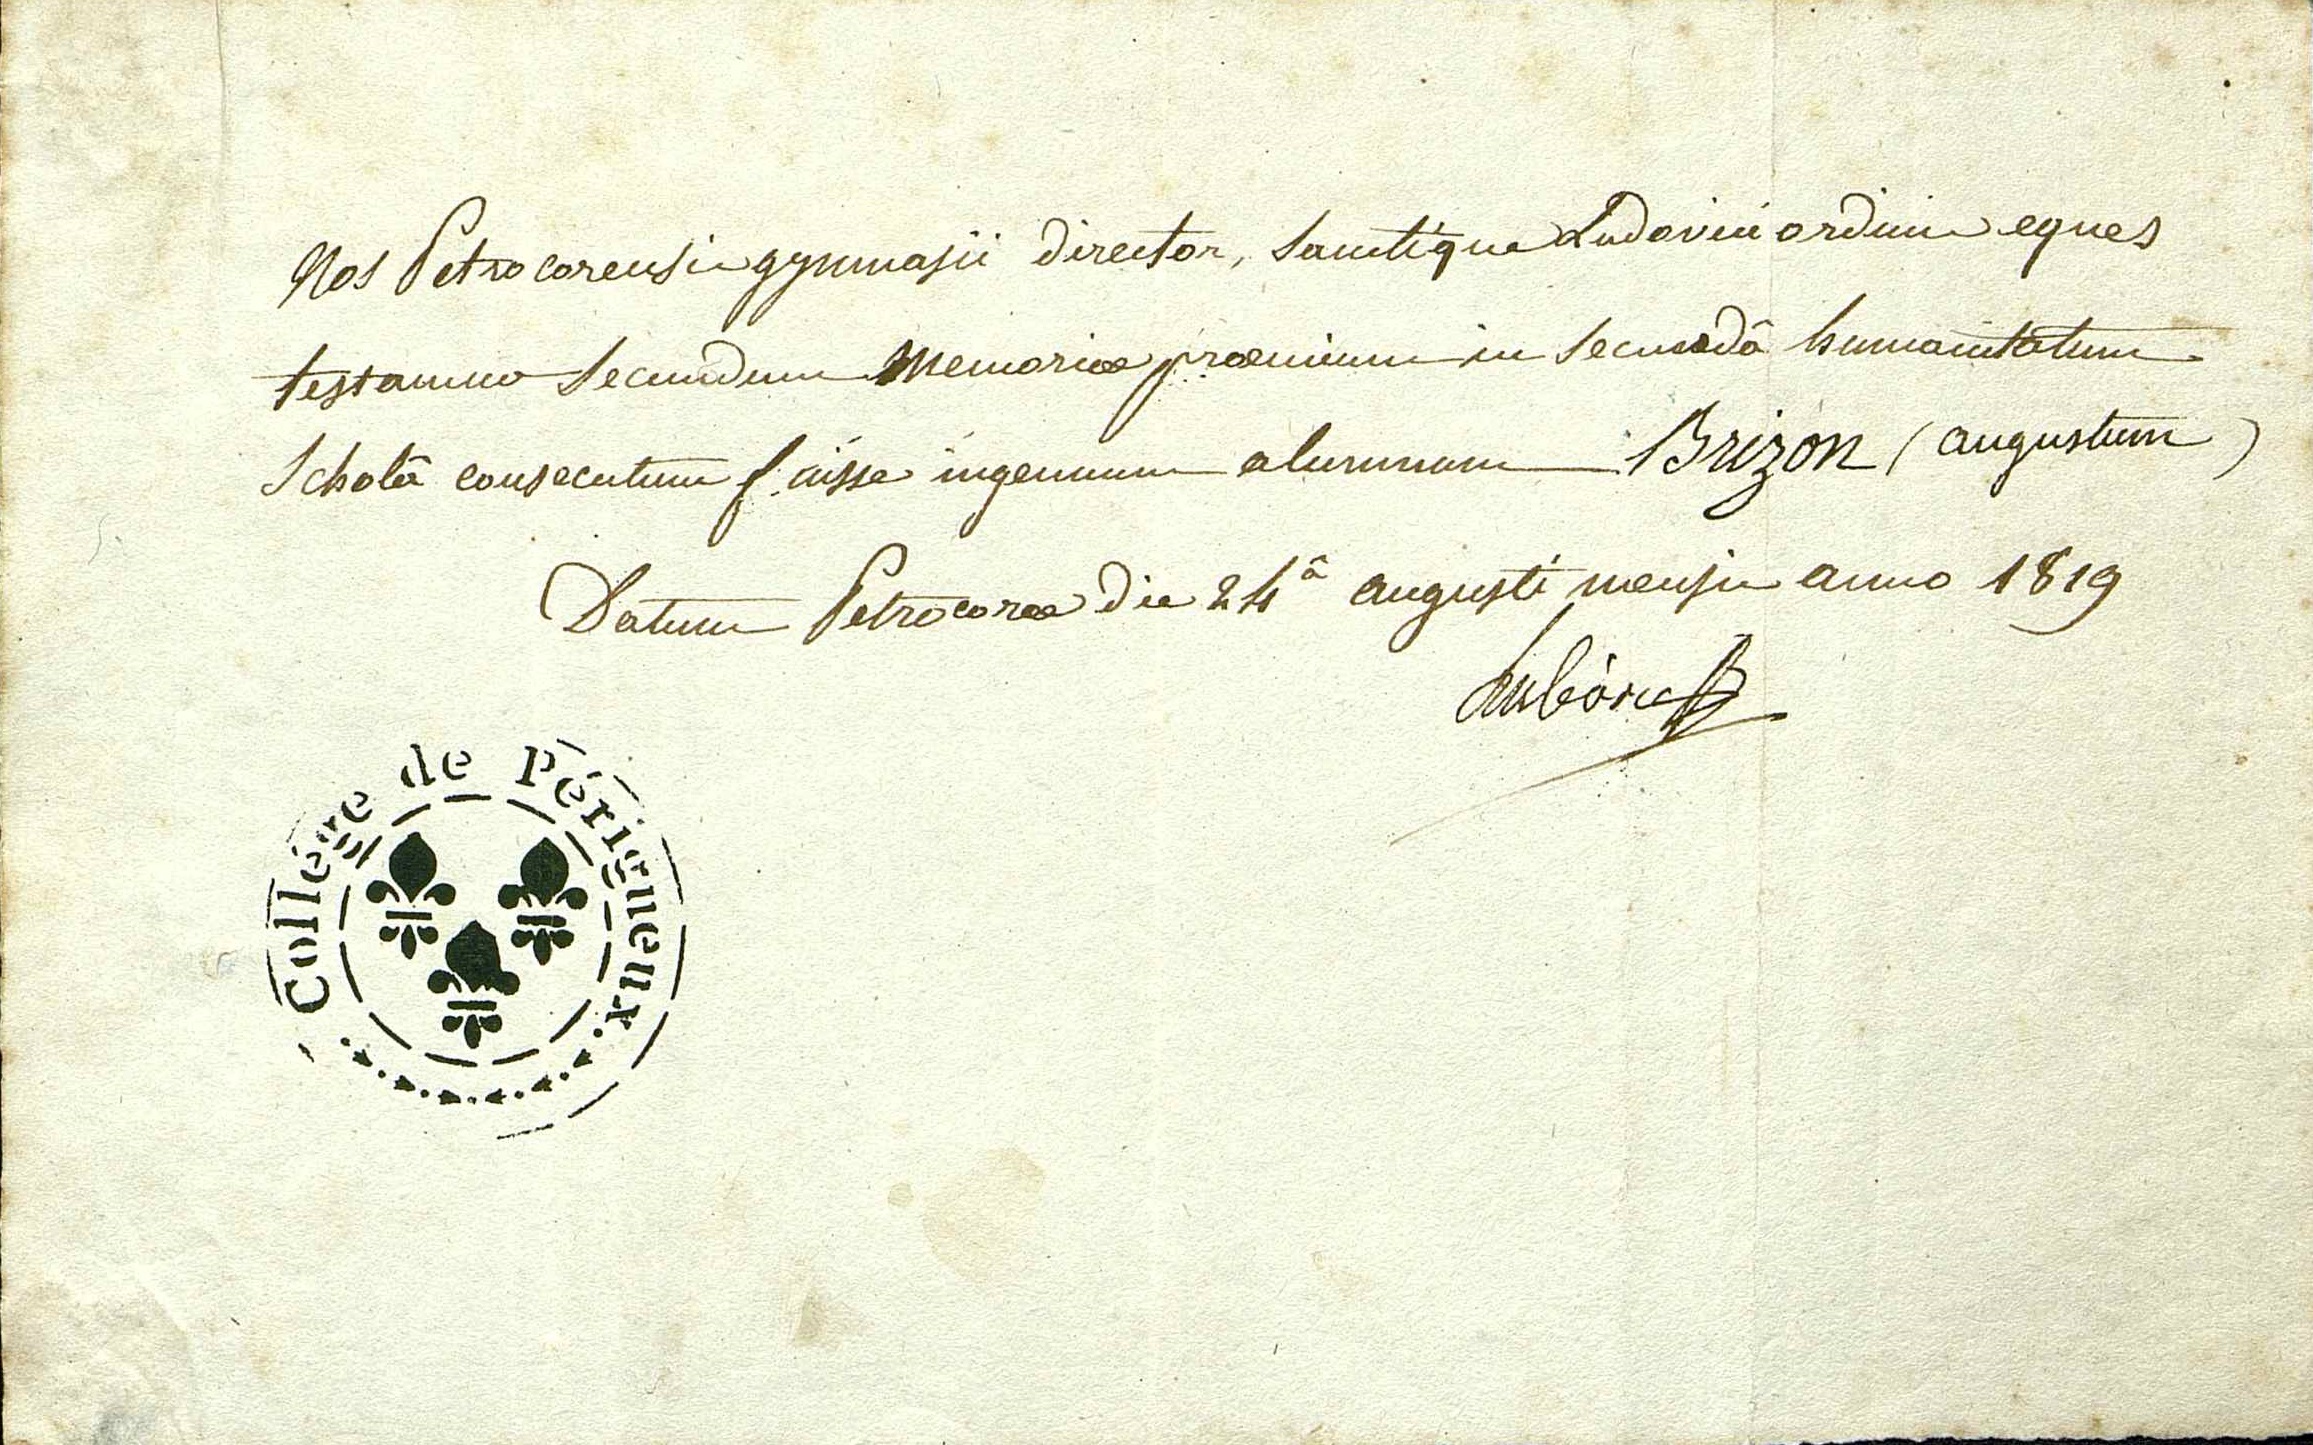 Nos Petrocorensis gymnasii director, Sanctique Ludovici ordinis eques
testamur secundum memoriæ præmium in secundâ humanitatum
Scholâ consecutum fuisse ingenuum alumnum Brizon (augustum)
Datum Petrocoræ die 24â augusti mensis anno 1819
Collége de Périgueux.